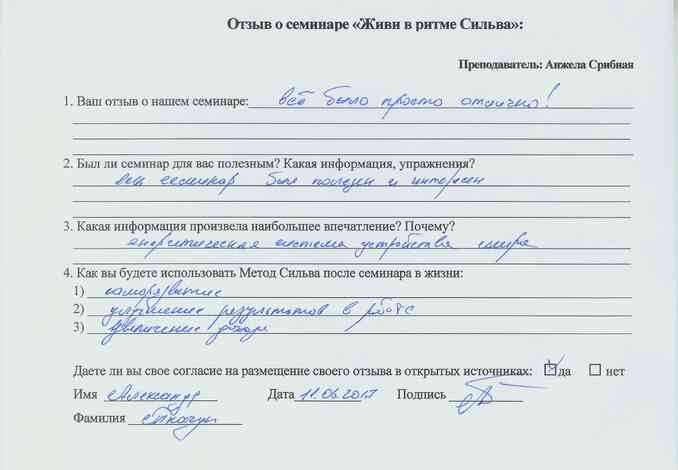 Отзыв о семинаре «Живи в ритме Сильва»:
Преподаватель: Анжела Срибная
1. Ваш отзыв о нашем семинаре: всё было просто отлично!
2. Был ли семинар для вас полезным? Какая информация, упражнения?
весь семинар был полезен и интересен
3. Какая информация произвела наибольшее впечатление? Почему?
энергитическая система устройства мира
4. Как вы будете использовать Метод Сильва после семинара в жизни:
1) саморазвитие
2) улучшение результатов в работе
3) увеличение дохода
Даете ли вы свое согласие на размещение своего отзыва в открытых источниках: да нет
Имя Александр Дата 11.06.2017 Подпись
Фамилия Ткачук